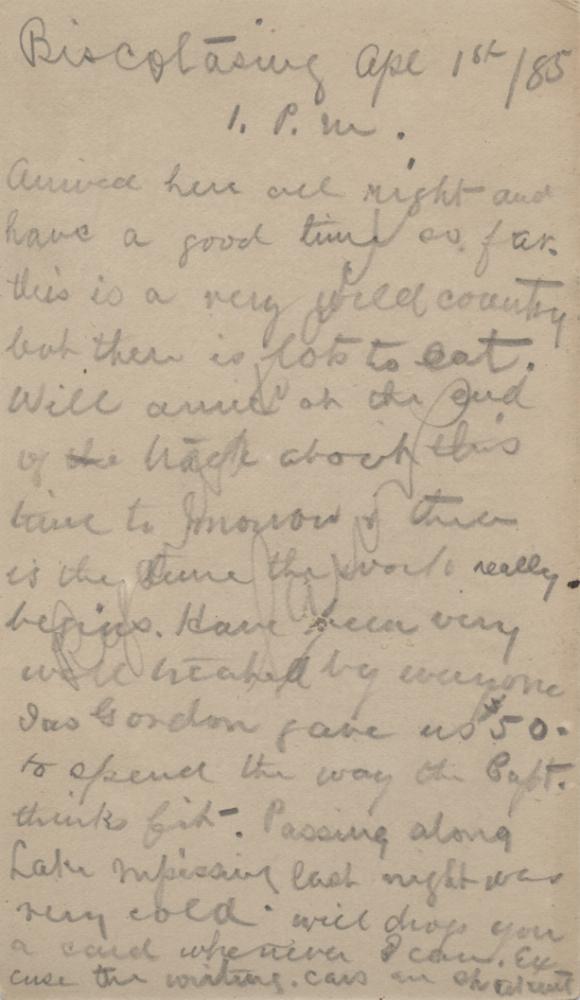 Biscotasing Apl 1st/85
1. P. M.
Arrived here all right and
have a good time so far.
this is a very wild country
but there is lots to eat.
Will arrive at the end
of the track about this
time to morrow & then
is the time the work really
begins. Have been very
well treated by everyone
Jas Gordon gave us $50.
to spend the way the Capt.
thinks fit. Passing along
Lake Nipissing last night was
very cold. will drop you
a card whenever I can. Ex
cuse the writing. cars are